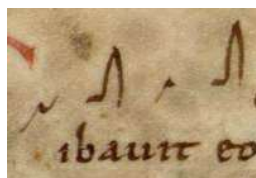 ibauit eo